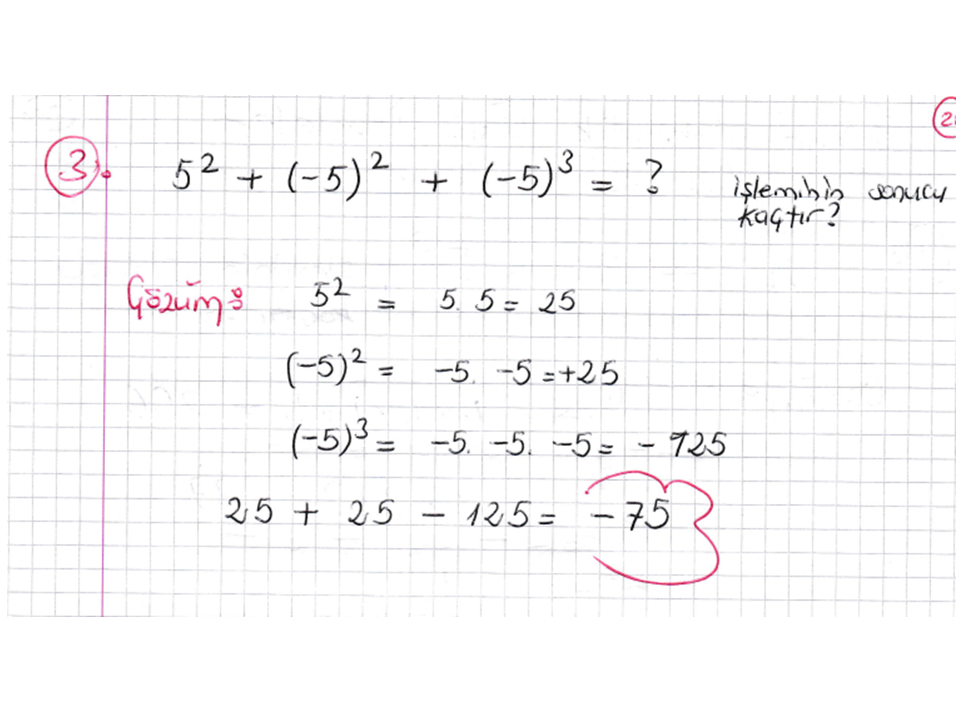 3. 5² + (-5)² + (-5)³ = ? işleminin sonucu
kaçtır?
Çözüm: 5² = 5. 5 = 25
(-5)² = -5. -5 = +25
(-5)³ = -5. -5. -5 = - 125
25 + 25 - 125 = -75